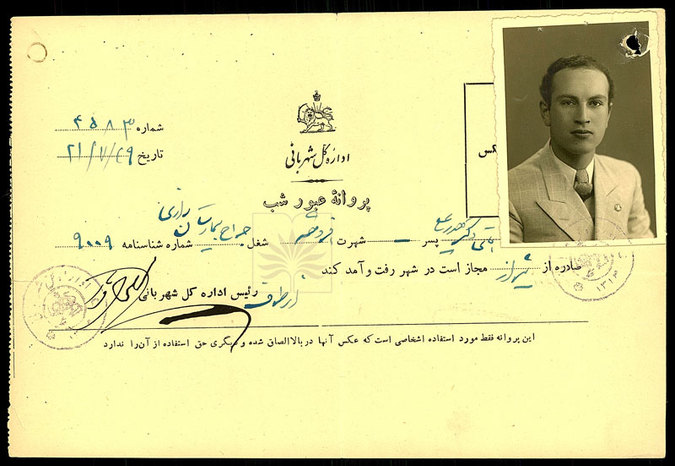 شماره ۴۵۸۳
تاریخ ۲۱/۷/۲۹
اداره کل شهربانی
عکس
پروانهٔ عبور شب
آقای دکتر پسر ـ شهرت شغل جراح بیمارستان رازی شماره شناسنامه ۹۰۰۹
صادره از شیراز مجاز است در شهر رفت و آمد کند .
از طرف رئیس اداره کل شهربانی
۱۳۱۳
این پروانه فقط مورد استفاده اشخاصی است که عکس آنها در بالا الصاق شده و دیگری حق استفاده از آن را ندارد